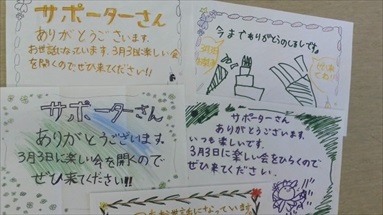 サポーターさん
ありがとうございます。
お世話になっています。3月3日に楽しい会
を開くのでぜひ来てください!!
今までありがとうのしるしです。
サポーターさん
ありがとうございます。
3月3日に楽しい会を開くので
ぜひ来てください!!
サポーターさん
ありがとうございます。
いつも楽しいです。
3月3日に楽しい会をひらくので
ぜひ来てください。